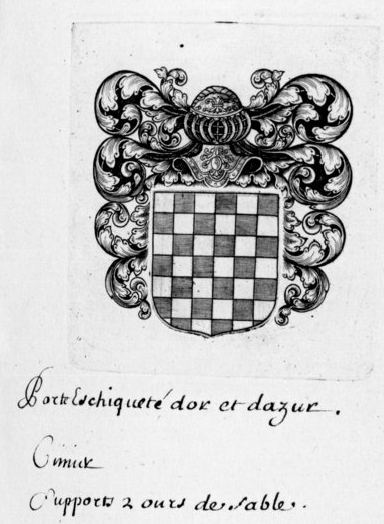 Porte Eschiqueté dor et dazur.
Cimier
Supports 2 ours de sable.